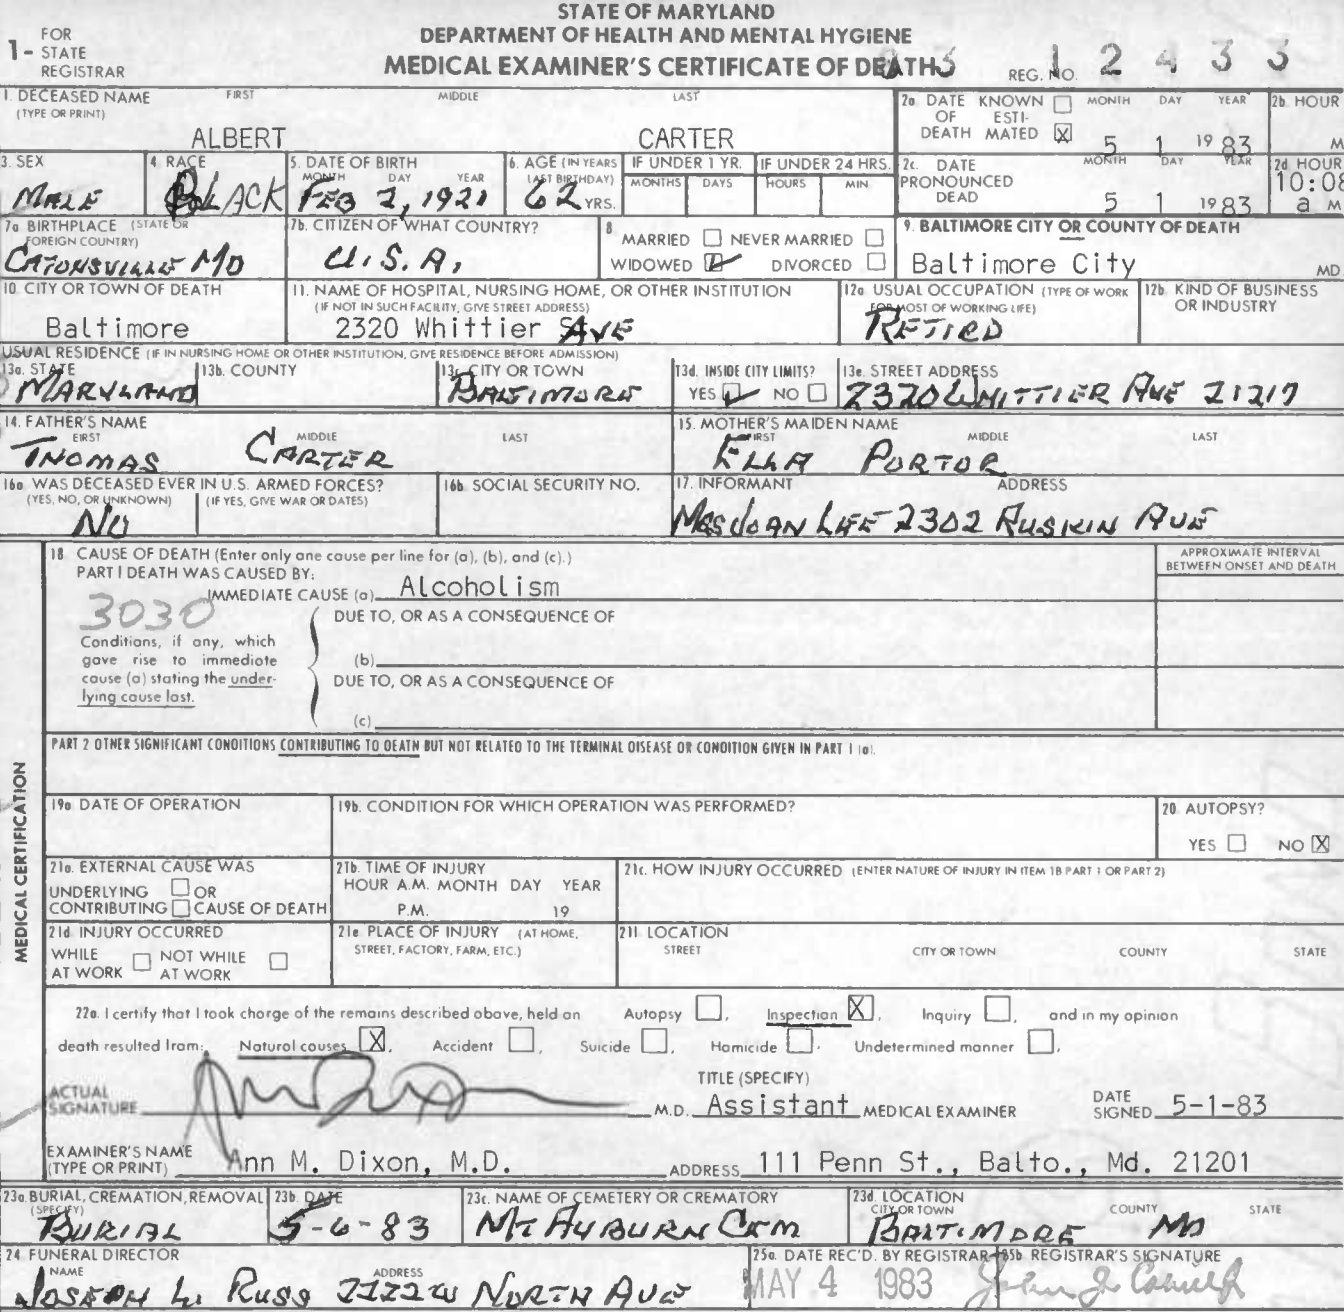 STATE OF MARYLAND
DEPARTMENT OF HEALTH AND MENTAL HYGIENE
MEDICAL EXAMINER'S CERTIFICATE OF DEATH
1- FOR STATE REGISTRAR
REG. NO. 12433
1. DECEASED NAME (TYPE OR PRINT) FIRST MIDDLE LAST
ALBERT CARTER
2a. DATE OF DEATH KNOWN ESTIMATED X MONTH DAY YEAR 5 1 1983
2b. HOUR M
3. SEX MALE
4. RACE BLACK
5. DATE OF BIRTH MONTH DAY YEAR FEB 2, 1921
6. AGE (IN YEARS LAST BIRTHDAY) 62 YRS.
IF UNDER 1 YR. MONTHS DAYS
IF UNDER 24 HRS. HOURS MIN.
2c. DATE PRONOUNCED DEAD MONTH DAY YEAR 5 1 1983
2d. HOUR 10:08 a M
7a. BIRTHPLACE (STATE OR FOREIGN COUNTRY) CATONSVILLE MD
7b. CITIZEN OF WHAT COUNTRY? U.S.A.
8. MARRIED NEVER MARRIED
WIDOWED ✓ DIVORCED
9. BALTIMORE CITY OR COUNTY OF DEATH Baltimore City MD
10. CITY OR TOWN OF DEATH Baltimore
11. NAME OF HOSPITAL, NURSING HOME, OR OTHER INSTITUTION
(IF NOT IN SUCH FACILITY, GIVE STREET ADDRESS)
2320 Whittier AVE
12a. USUAL OCCUPATION (TYPE OF WORK FOR MOST OF WORKING LIFE) RETIRD
12b. KIND OF BUSINESS OR INDUSTRY
USUAL RESIDENCE (IF IN NURSING HOME OR OTHER INSTITUTION, GIVE RESIDENCE BEFORE ADMISSION)
13a. STATE MARYLAND
13b. COUNTY
13c. CITY OR TOWN BALTIMORE
13d. INSIDE CITY LIMITS? YES ✓ NO
13e. STREET ADDRESS 2320 WHITTIER AVE 21217
14. FATHER'S NAME FIRST MIDDLE LAST
THOMAS CARTER
15. MOTHER'S MAIDEN NAME FIRST MIDDLE LAST
ELLA PORTOR
16a. WAS DECEASED EVER IN U.S. ARMED FORCES?
(YES, NO, OR UNKNOWN) (IF YES, GIVE WAR OR DATES)
NO
16b. SOCIAL SECURITY NO.
17. INFORMANT ADDRESS
MRS JOAN LEE 2302 RUSKIN AVE
MEDICAL CERTIFICATION
18. CAUSE OF DEATH (Enter only one cause per line for (a), (b), and (c).)
APPROXIMATE INTERVAL BETWEEN ONSET AND DEATH
PART I DEATH WAS CAUSED BY:
IMMEDIATE CAUSE (a) Alcoholism
3030
DUE TO, OR AS A CONSEQUENCE OF
Conditions, if any, which gave rise to immediate cause (a) stating the underlying cause last.
(b)
DUE TO, OR AS A CONSEQUENCE OF
(c)
PART 2 OTHER SIGNIFICANT CONDITIONS CONTRIBUTING TO DEATH BUT NOT RELATED TO THE TERMINAL DISEASE OR CONDITION GIVEN IN PART 1 (a).
19a. DATE OF OPERATION
19b. CONDITION FOR WHICH OPERATION WAS PERFORMED?
20. AUTOPSY? YES NO X
21a. EXTERNAL CAUSE WAS
UNDERLYING OR
CONTRIBUTING CAUSE OF DEATH
21b. TIME OF INJURY
HOUR A.M. MONTH DAY YEAR
P.M. 19
21c. HOW INJURY OCCURRED (ENTER NATURE OF INJURY IN ITEM 18 PART 1 OR PART 2)
21d. INJURY OCCURRED
WHILE AT WORK NOT WHILE AT WORK
21e. PLACE OF INJURY (AT HOME, STREET, FACTORY, FARM, ETC.)
21f. LOCATION
STREET CITY OR TOWN COUNTY STATE
22a. I certify that I took charge of the remains described above, held an Autopsy , Inspection X, Inquiry , and in my opinion
death resulted from: Natural causes X, Accident , Suicide , Homicide , Undetermined manner .
ACTUAL SIGNATURE M.D. TITLE (SPECIFY) Assistant MEDICAL EXAMINER DATE SIGNED 5-1-83
EXAMINER'S NAME (TYPE OR PRINT) Ann M. Dixon, M.D. ADDRESS 111 Penn St., Balto., Md. 21201
23a. BURIAL, CREMATION, REMOVAL (SPECIFY) BURIAL
23b. DATE 5-6-83
23c. NAME OF CEMETERY OR CREMATORY MT AUBURN CEM
23d. LOCATION CITY OR TOWN COUNTY STATE
BALTIMORE MD
24. FUNERAL DIRECTOR
NAME ADDRESS
JOSEPH L. RUSS 2222 W NORTH AVE
25a. DATE REC'D. BY REGISTRAR MAY 4 1983
25b. REGISTRAR'S SIGNATURE